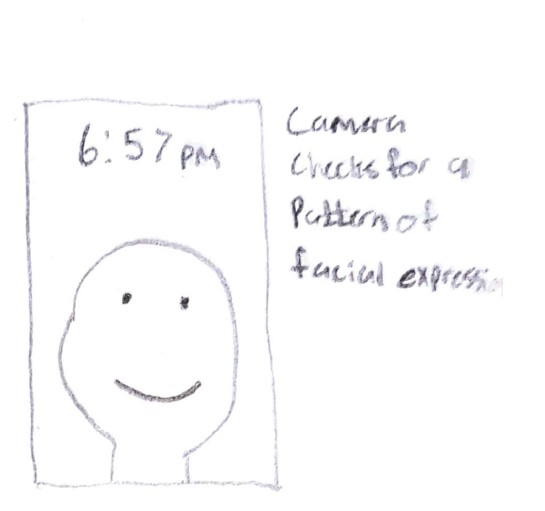 6:57 PM
Camera
Checks for a
Pattern of
facial expression